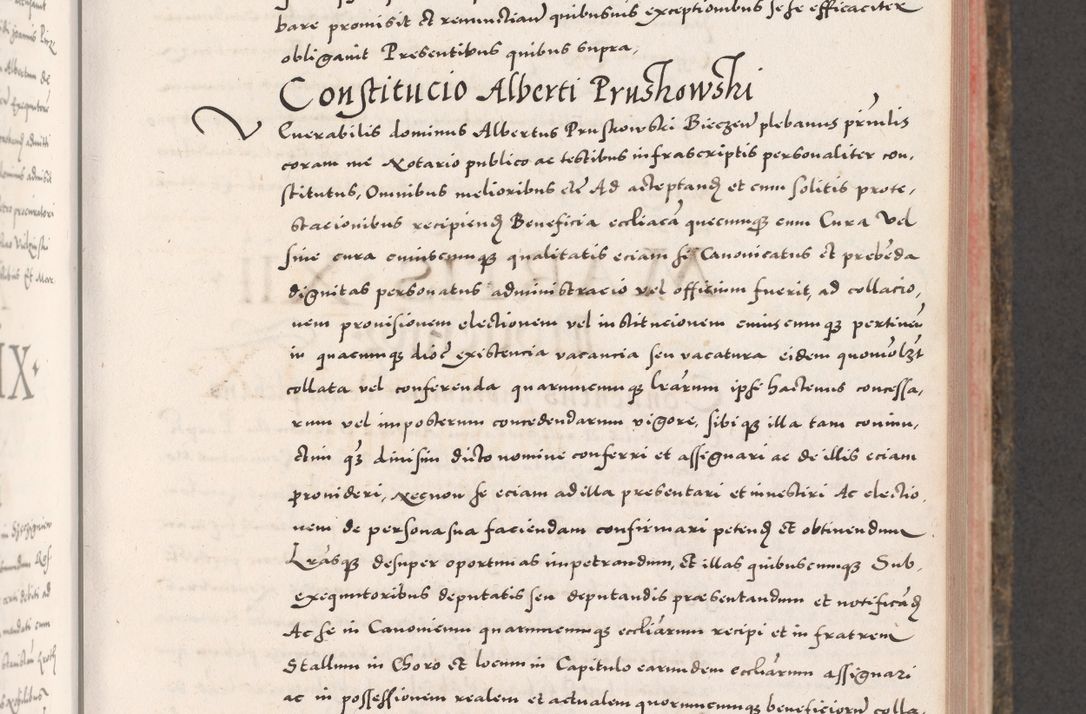 bare promisit et renunctian quibusuis exceptionibus se se efficaciter
obligauit Presentibus quibus supra,
Constitucio Alberti Prushowshi
Venerabilis dominus Albertus Pruskowski Bieczen plebanus priuilis
coram me Notario publico ac testibus infrascriptis personaliter con,
stitutus, Omnibus melioribus etc Ad acceptand et cum solitis prote,
stacionibus recipiend Beneficia eccliaca quecumq cum Cura Vel
sine cura cuiuscumq qualitatis eciam si Canonicatus et prebenda
dignitas personatus administracio vel officium fuerit, ad collacio,
nem prouisionem electionem vel institucionem cuiuscumq pertinen
in quacumq dioc existencia vacancia seu vacatura eidem quomolzt
collata vel conferenda quarumcumq lrarum ipse hactenus concessa,
rum vel imposterum concedendarum vigore, sibiq illa tam coniun,
ctim q diuisim dicto nomine conferri et assignari ac de illis eciam
prouideri, Necnon se eciam ad illa presentari et inuestiri Ac electio,
nem de persona sua faciendam confirmari petend et obtinendum
Lrasq desuper oportunas impetrandum, et illas quibuscumq Sub,
exequutoribus deputatis seu deputandis praesentandum et notificad
Ac se in Canonicum quarumcumq eccliarum recipi et in fratrem
Stallum in Choro et locum in Capitulo earundem eccliarum assignari
ac in possessionem realem et actualem quorumcumq beneficiorum colla,